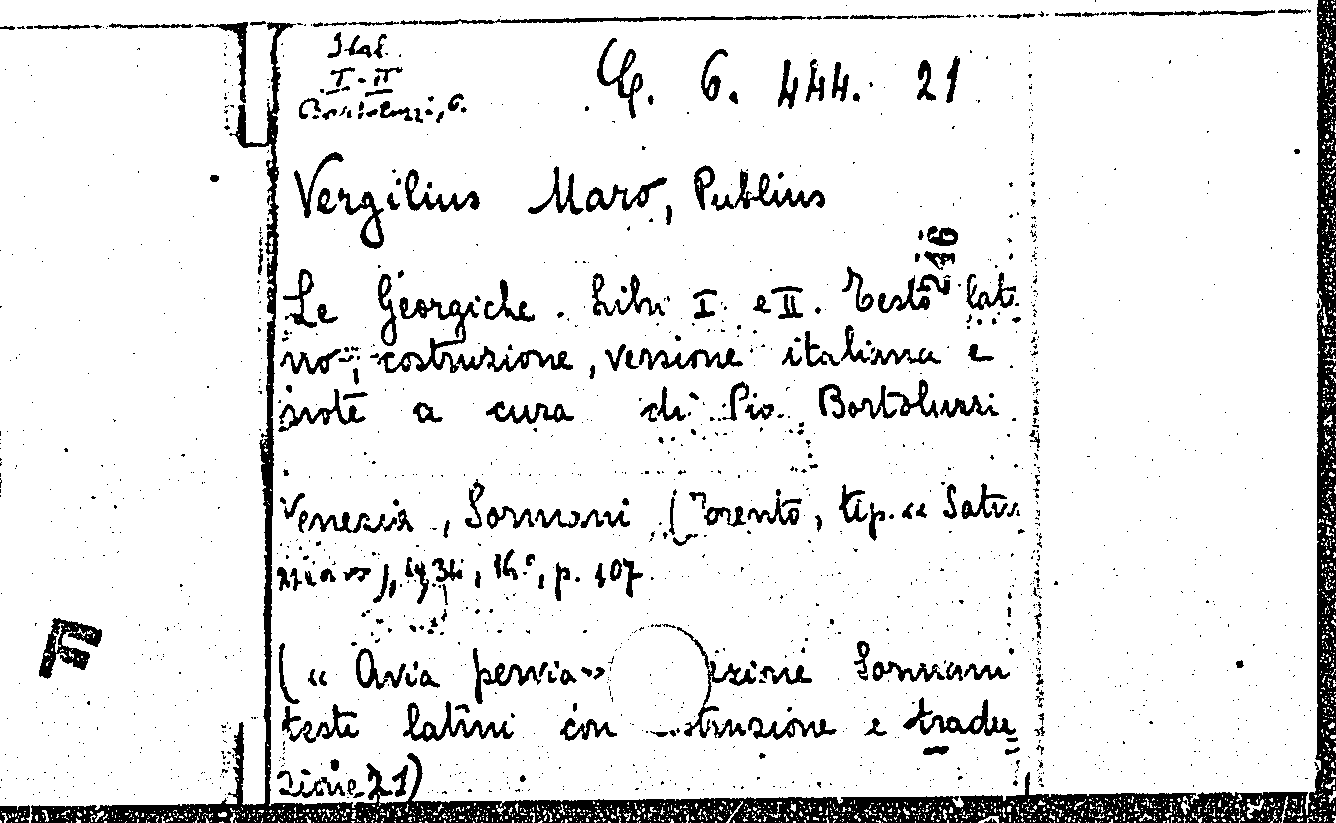 Ital.
I-II
Bortoluzzi, G.
C. 6. 444. 21
Vergilius Maro, Publius
246
Le Georgiche. Libri I e II. Testo lati
no, costruzione, versione italiana e
note a cura di Pio Bortoluzzi
Venezia, Sormani (Trento, tip.
), 16°, p. 107.
(« Avia pervia» ezione Sormani
testi latini con struzione e tradu
zione 21)
F